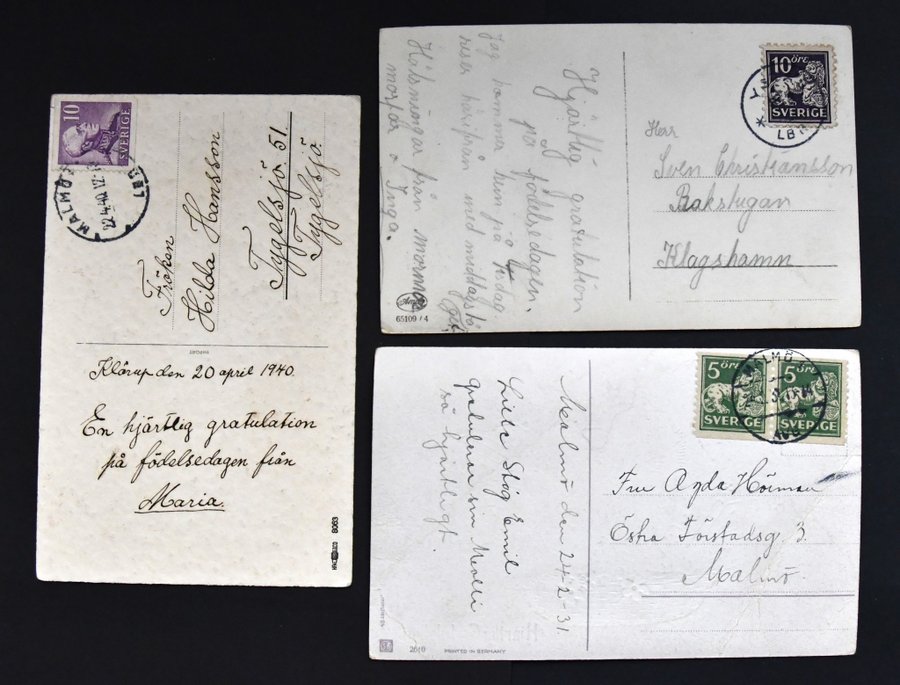 10
SVERIGE
MALMÖ
22.4.40.12-
LBR1
Fröken
Hilda Hansson
Tygelsjö 51.
Tygelsjö.
IMPORT
Klörup den 20 april 1940.
En hjärtlig gratulation
på födelsedagen från
Maria.
8063
10 ÖRE
SVERIGE
LBR
Herr
Sven Christiansson
Bakstugan
Klagshamn
Hjärtlig gratulation
på födelsedagen.
Jag kommer hem på
reser härifrån med
Hälsningar från mormor
morfar o Inga.
65109/4
5 ÖRE
SVERIGE
5 ÖRE
SVERIGE
MALMÖ
Fru Agda
Östra Förstadsg 3.
Malmö.
Malmö den 24-2-31.
Lille Stig Emil
gratulerar sin
så hjärtligt.
2610
PRINTED IN GERMANY